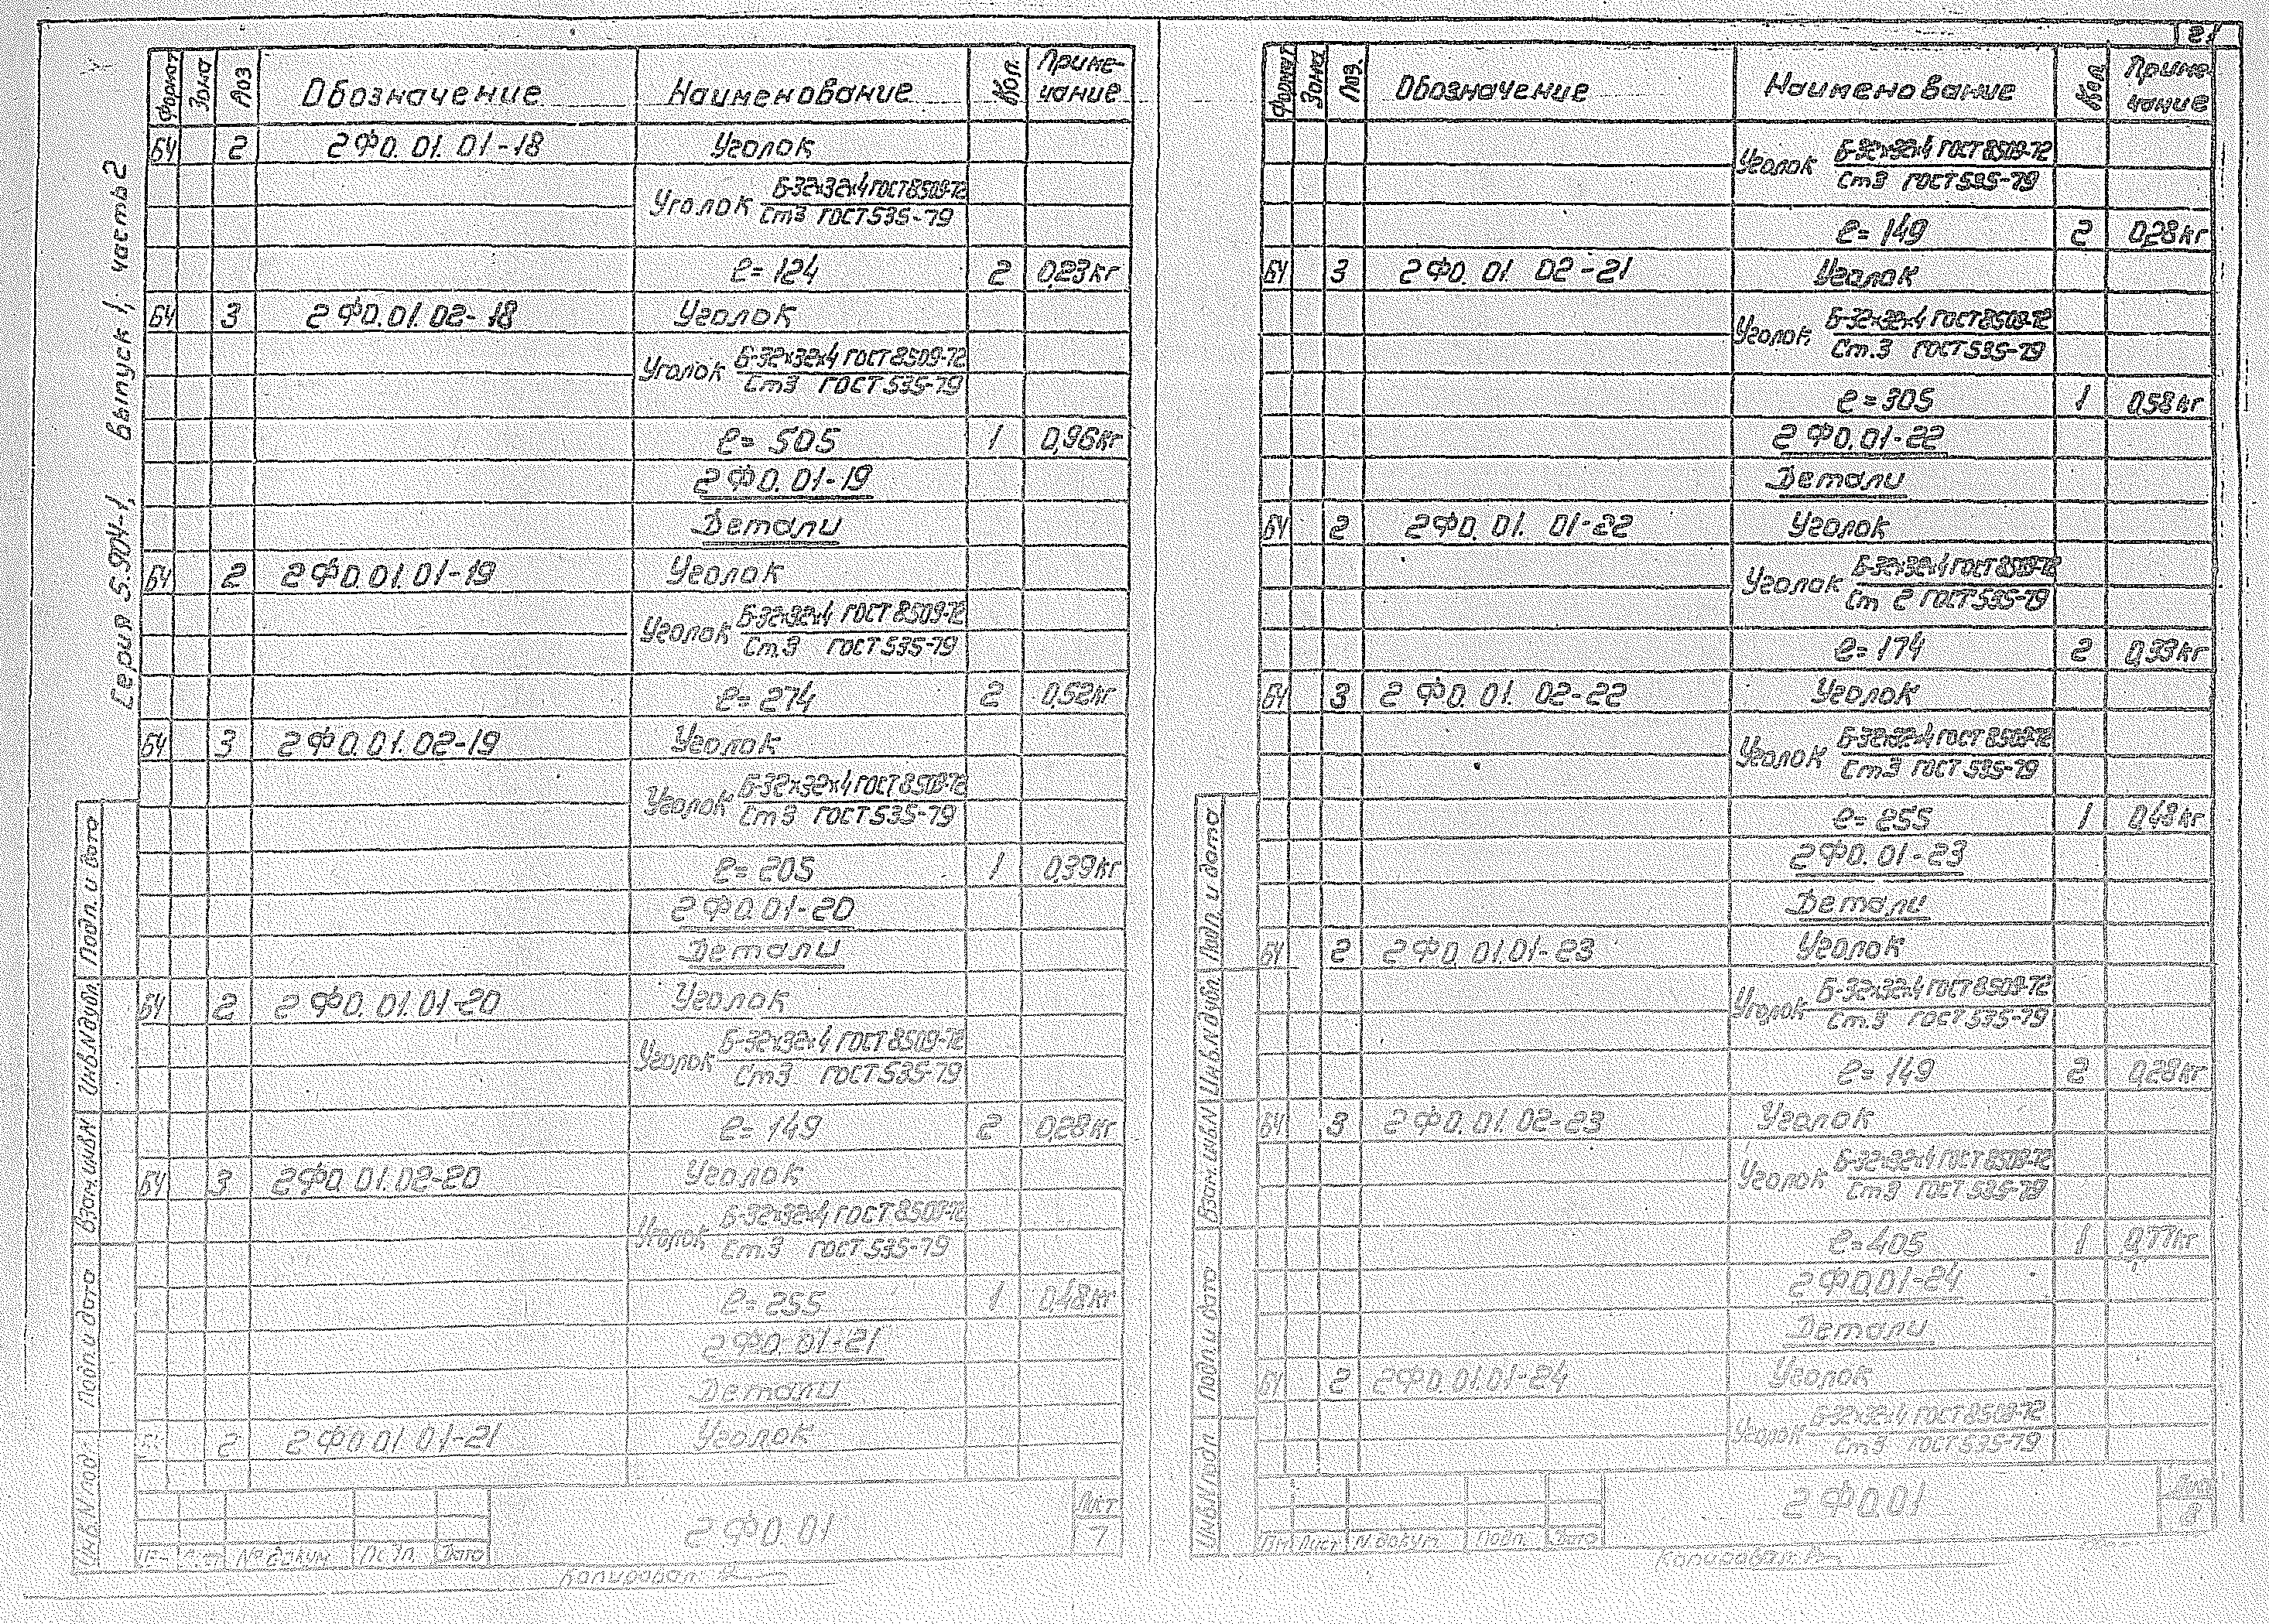 21
Серия 5.904-1, выпуск 1, часть 2
Формат Зона Поз Обозначение Наименование Кол. Приме-
чание
БЧ 2 2ФО.01.01-18 Уголок
Уголок Б-32х32х4 ГОСТ 8509-72
Ст3 ГОСТ 535-79
ℓ= 124 2 0,23кг
БЧ 3 2ФО.01.02-18 Уголок
Уголок Б-32х32х4 ГОСТ 8509-72
Ст3 ГОСТ 535-79
ℓ= 505 1 0,96кг
2ФО.01-19
Детали
БЧ 2 2ФО.01.01-19 Уголок
Уголок Б-32х32х4 ГОСТ 8509-72
Ст.3 ГОСТ 535-79
ℓ= 274 2 0,52кг
БЧ 3 2ФО.01.02-19 Уголок
Уголок Б-32х32х4 ГОСТ 8509-72
Ст3 ГОСТ 535-79
ℓ= 205 1 0,39кг
2ФО.01-20
Детали
БЧ 2 2ФО.01.01-20 Уголок
Уголок Б-32х32х4 ГОСТ 8509-72
Ст3 ГОСТ 535-79
ℓ= 149 2 0,28кг
БЧ 3 2ФО.01.02-20 Уголок
Уголок Б-32х32х4 ГОСТ 8509-72
Ст.3 ГОСТ 535-79
ℓ= 255 1 0,48кг
2ФО.01-21
Детали
2 2ФО.01.01-21 Уголок
Подп. и дата
Инв.N дубл.
Взам.инв.N
Подп. и дата
Инв.N подп.
2ФО.01
Лист
7
Лист №докум. Подп. Дата
Копировал:
Формат Зона Поз. Обозначение Наименование Кол. Приме-
чание
Уголок Б-32х32х4 ГОСТ 8509-72
Ст3 ГОСТ 535-79
ℓ= 149 2 0,28кг
БЧ 3 2ФО.01.02-21 Уголок
Уголок Б-32х32х4 ГОСТ 8509-72
Ст.3 ГОСТ 535-79
ℓ=305 1 0,58кг
2ФО.01-22
Детали
БЧ 2 2ФО.01.01-22 Уголок
Уголок Б-32х32х4 ГОСТ 8509-72
Ст 2 ГОСТ 535-79
ℓ= 174 2 0,33кг
БЧ 3 2ФО.01.02-22 Уголок
Уголок Б-32х32х4 ГОСТ 8509-72
Ст3 ГОСТ 535-79
ℓ= 255 1 0,48кг
2ФО.01-23
Детали
БЧ 2 2ФО.01.01-23 Уголок
Уголок Б-32х32х4 ГОСТ 8509-72
Ст.3 ГОСТ 535-79
ℓ= 149 2 0,28кг
БЧ 3 2ФО.01.02-23 Уголок
Уголок Б-32х32х4 ГОСТ 8509-72
Ст3 ГОСТ 535-79
ℓ=405 1 0,77кг
2ФО.01-24
Детали
БЧ 2 2ФО.01.01-24 Уголок
Уголок Б-32х32х4 ГОСТ 8509-72
Ст3 ГОСТ 535-79
Подп. и дата
Инв.N дубл.
Взам.инв.N
Подп. и дата
Инв.N подп.
2ФО.01
Лист
8
Изм Лист N докум. Подп. Дата
Копировал: